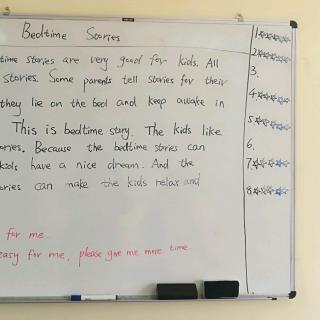 Bedtime Stories
time stories are very good for kids. All
stories. Some parents tell stories for their
they lie on the bed and keep awake in
This is bedtime story. The kids like
ories. Because the bedtime stories can
kids have a nice dream. And the
ories can make the kids relax and
for me.
easy for me, please give me more time
1.
2.
3.
4.
5.
6.
7.
8.